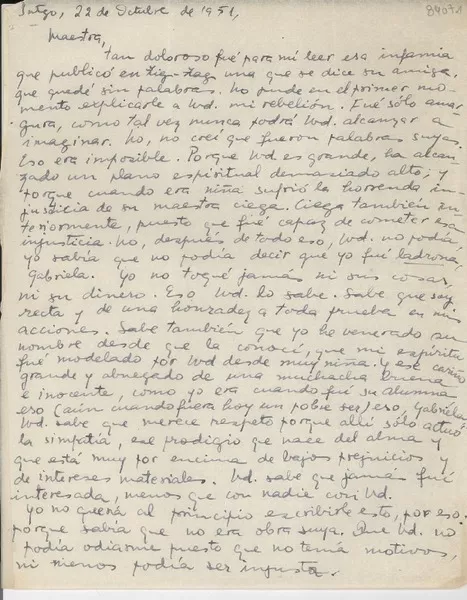 Sntgo, 22 de Octubre de 1951,
89071
Maestra,
tan doloroso fué para mí leer esa infamia
que publicó en tig-tag una que se dice su amiga,
que quedé sin palabras. No pude en el primer mo-
mento explicarle a Ud. mi rebelión. Fué sólo amar-
gura, como tal vez nunca podrá Ud. alcanzar a
imaginar. No, no creí que fueron palabras suyas.
Eso era imposible. Porque Ud es grande, ha alcan-
zado un plano espiritual demasiado alto; y
porque cuando era niña sufrió la horrenda in-
justicia de su maestra ciega. Ciega también in-
teriormente, puesto que fué capaz de cometer esa
injusticia. No, después de todo eso, Ud. no podía,
yo sabía que no podía decir que yo fuí ladrona,
Gabriela. Yo no toqué jamás ni sus cosas,
ni su dinero. Eso Ud. lo sabe. Sabe que soy
recta y de una honradez a toda prueba en mis
acciones. Sabe también que yo he venerado su
nombre desde que la conocí, que mi espíritu
fué modelado por Ud desde muy niña. Y ese cariño
grande y abnegado de una muchacha buena
e inocente, como yo era cuando fuí su alumna
eso (aún cuando fuera hoy un pobre ser) eso, Gabriela
Ud. sabe que merece respeto porque allí sólo actuó
la simpatía, ese prodigio que nace del alma y
que está muy por encima de bajos prejuicios y
de intereses materiales. Ud. sabe que jamás fuí
interesada, menos que con nadie con Ud.
Yo no quería al principio escribirle esto, por eso:
porque sabía que no era obra suya. Que Ud. no
podía odiarme puesto que no tenía motivos,
ni menos podía ser injusta.